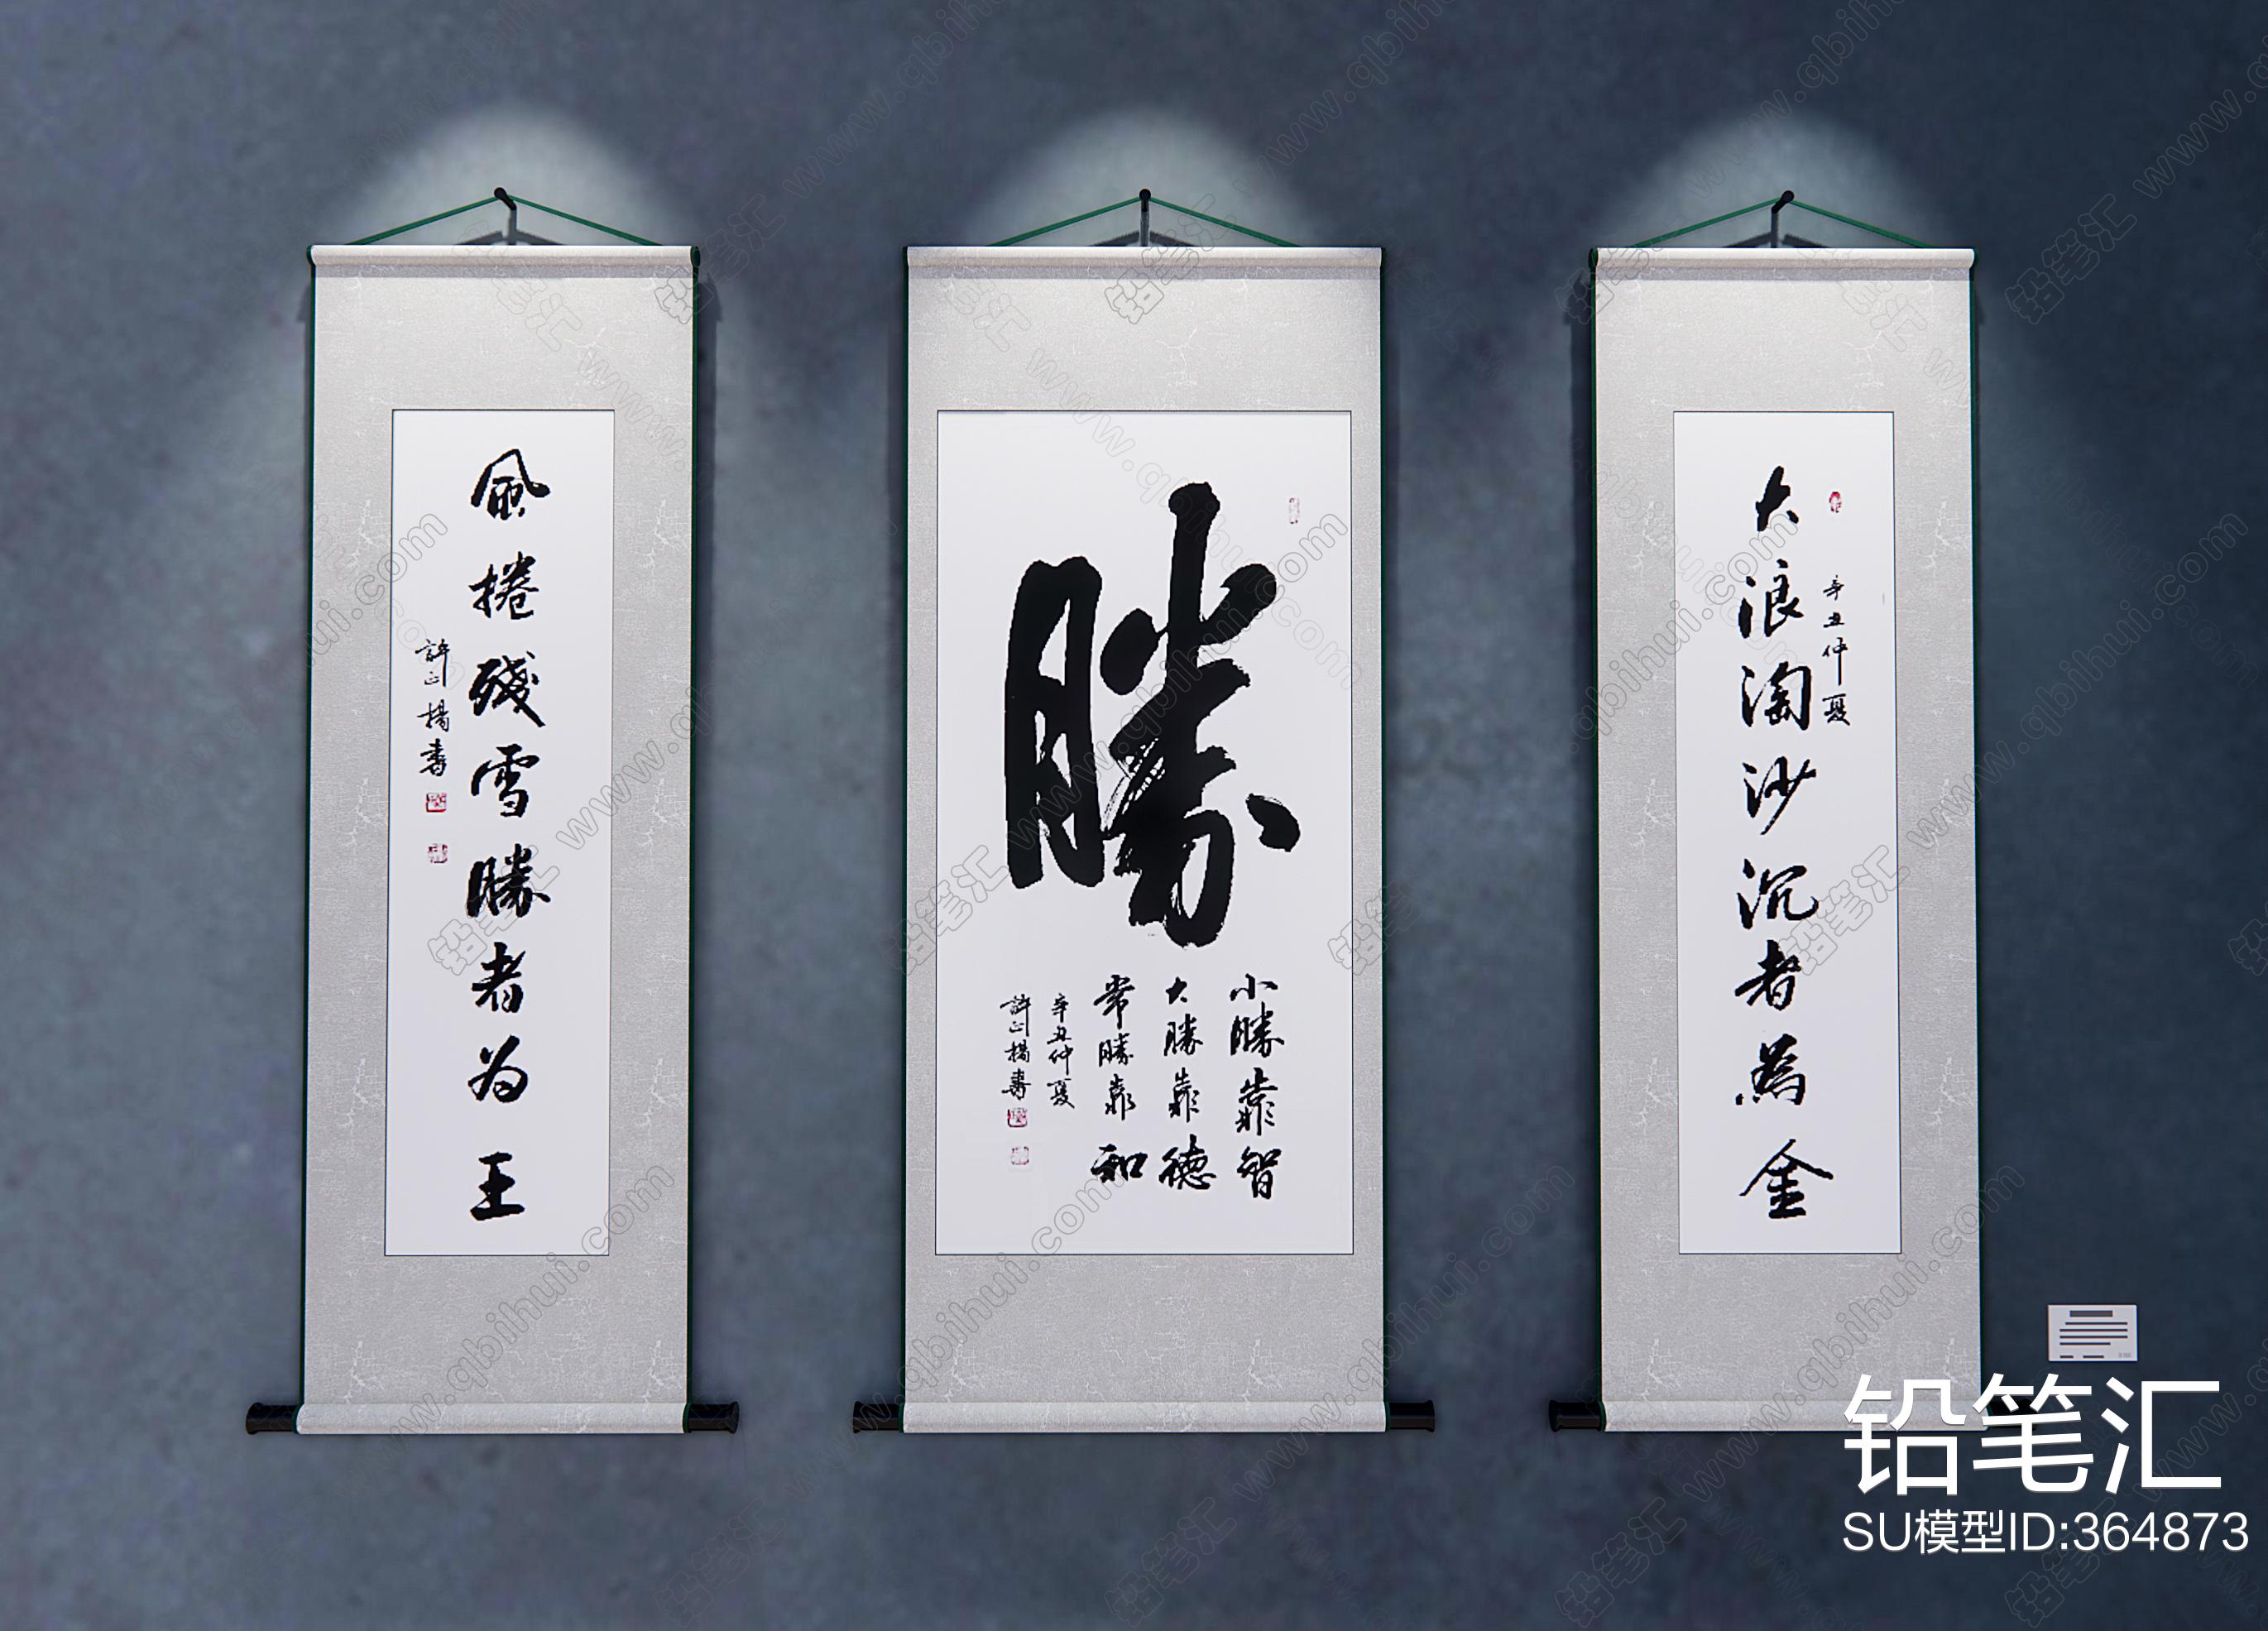 辛丑仲夏
大浪淘沙沉者為金
勝
小勝靠智
大勝靠德
常勝靠和
辛丑仲夏
許正楊書
風捲殘雪勝者为王
許正楊書
铅笔汇
SU模型ID:364873
铅笔汇 www.qbihui.com